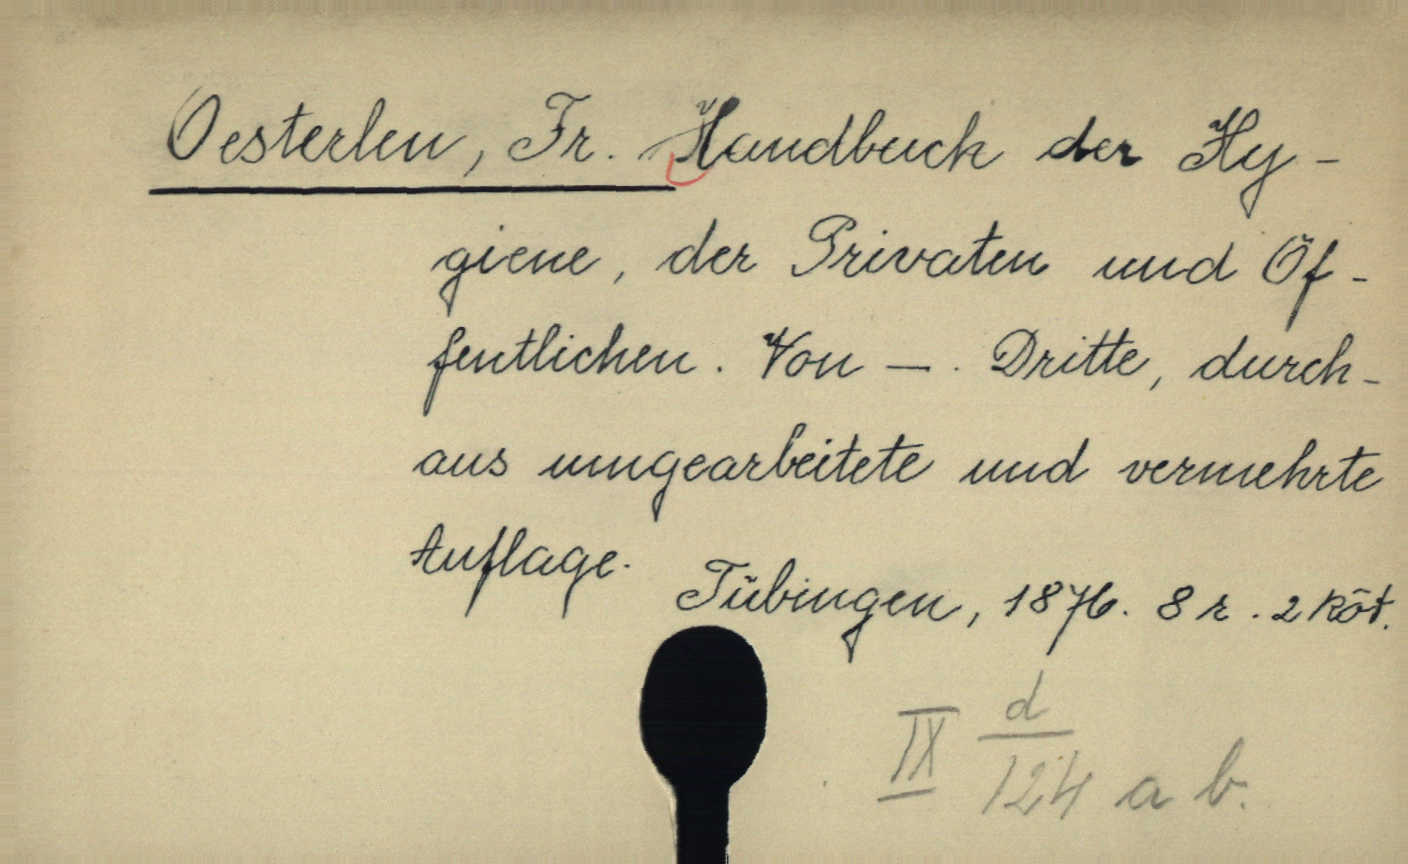 Oesterlen, Fr. Handbuch der Hy-
giene, der Privaten und Öf-
fentlichen. Von —. Dritte, durch-
aus umgearbeitete und vermehrte
Auflage.
Tübingen, 1876. 8 r. 2 köt.
IX d/124 a b.